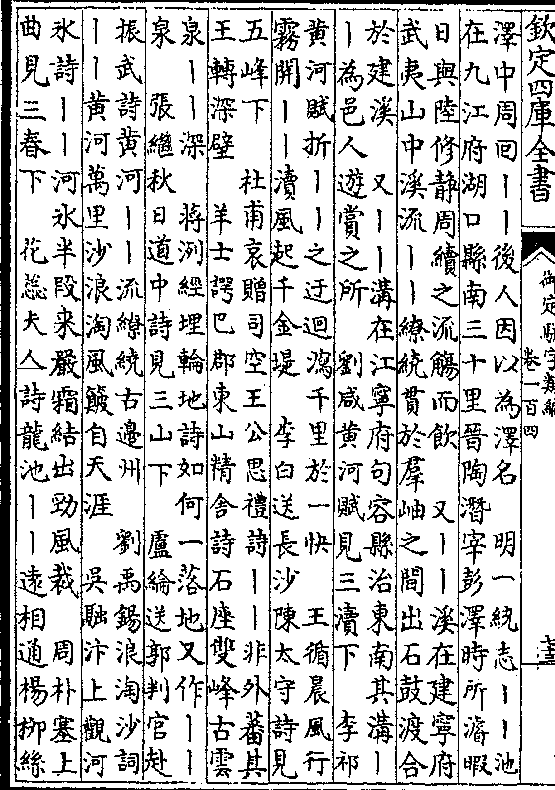 欽定四庫全書
御定駢字類編
卷一百四
澤中周回丨丨後人因以為澤名　明一統志丨丨池
在九江府湖口縣南三十里晉陶潛宰彭澤時所瀦暇
日與陸修静周續之流觴而飲　又丨丨溪在建寧府
武夷山中溪流丨丨繚繞貫於羣岫之間出石鼓渡合
於建溪　又丨丨溝在江寧府句容縣治東南其溝丨
丨為邑人遊賞之所　劉咸黄河賦見三瀆下　李祁
黄河賦折丨丨之迂迴瀉千里於一快　王循晨風行
霧開丨丨瀆風起千金堤　李白送長沙陳太守詩見
五峰下　杜甫哀贈司空王公思禮詩丨丨非外蕃其
王轉深壁　羊士諤巴郡東山精舍詩石座雙峰古雲
泉丨丨深　蔣洌經埋輪地詩如何一落地又作丨丨
泉　張繼秋日道中詩見三山下　盧綸送郭判官赴
振武詩黄河丨丨流繚繞古邊州　劉禹錫浪淘沙詞
丨丨黄河萬里沙浪淘風簸自天涯　吳融汴上觀河
氷詩丨丨河氷半段來嚴霜結出勁風裁　周朴塞上
曲見三春下　花蕊夫人詩龍池丨丨遠相通楊柳絲